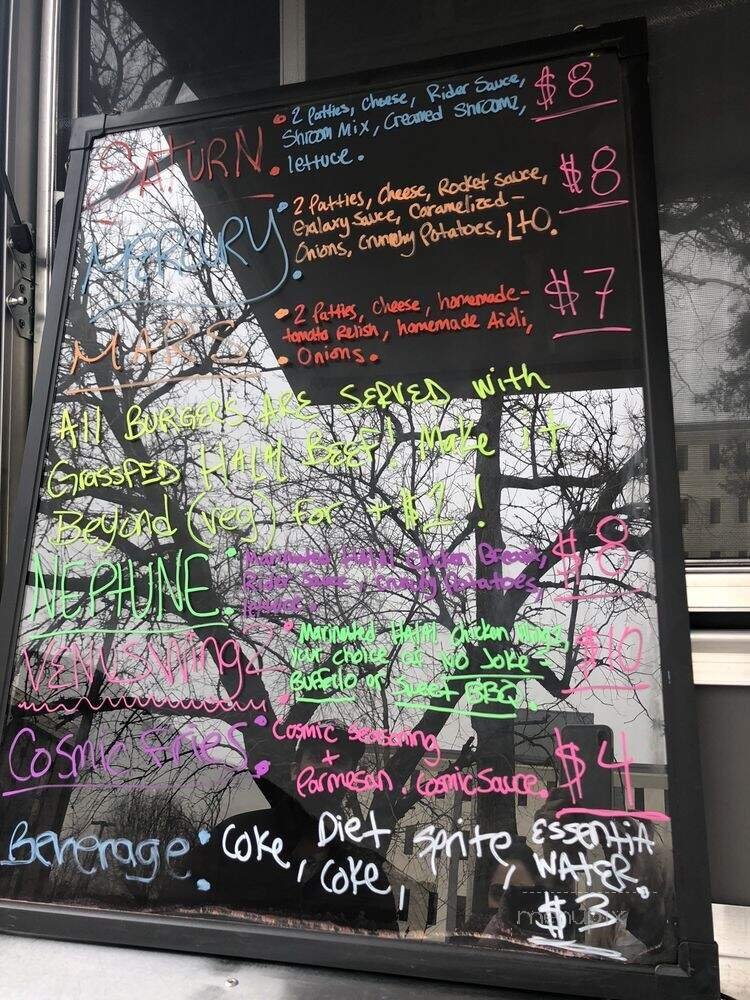 SATURN. • 2 Patties, Cheese, Rider Sauce, $8
Shroom Mix, Creamed Shroomz,
lettuce.
MERCURY. • 2 Patties, Cheese, Rocket Sauce, $8
Galaxy Sauce, Caramelized-
Onions, Crunchy Potatoes, LTO.
MARS • 2 Patties, Cheese, homemade- $7
tomato Relish, homemade Aioli,
• Onions.
All BURGERS ARE SERVED with
GrassFED HALAL BEEF! Make it
Beyond (veg) for + $2!
NEPTUNE: Marinated HALAL Chicken Breast, $8
Rider Sauce, Crunchy Potatoes,
lettuce.
VENUS Wingz • Marinated HALAL Chicken Wings, $10
your choice of NO JOKE-
Buffallo or Sweet BBQ.
Cosmic Fries: Cosmic Seasoning $4
+
Parmesan. Cosmic Sauce.
Beverage: Coke, Diet Coke, Sprite, ESSENTIA WATER
$3